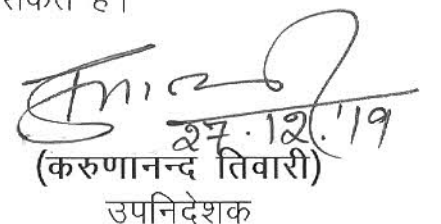 सकते हैं।
27.12.'19
(करुणानन्द तिवारी)
उपनिदेशक